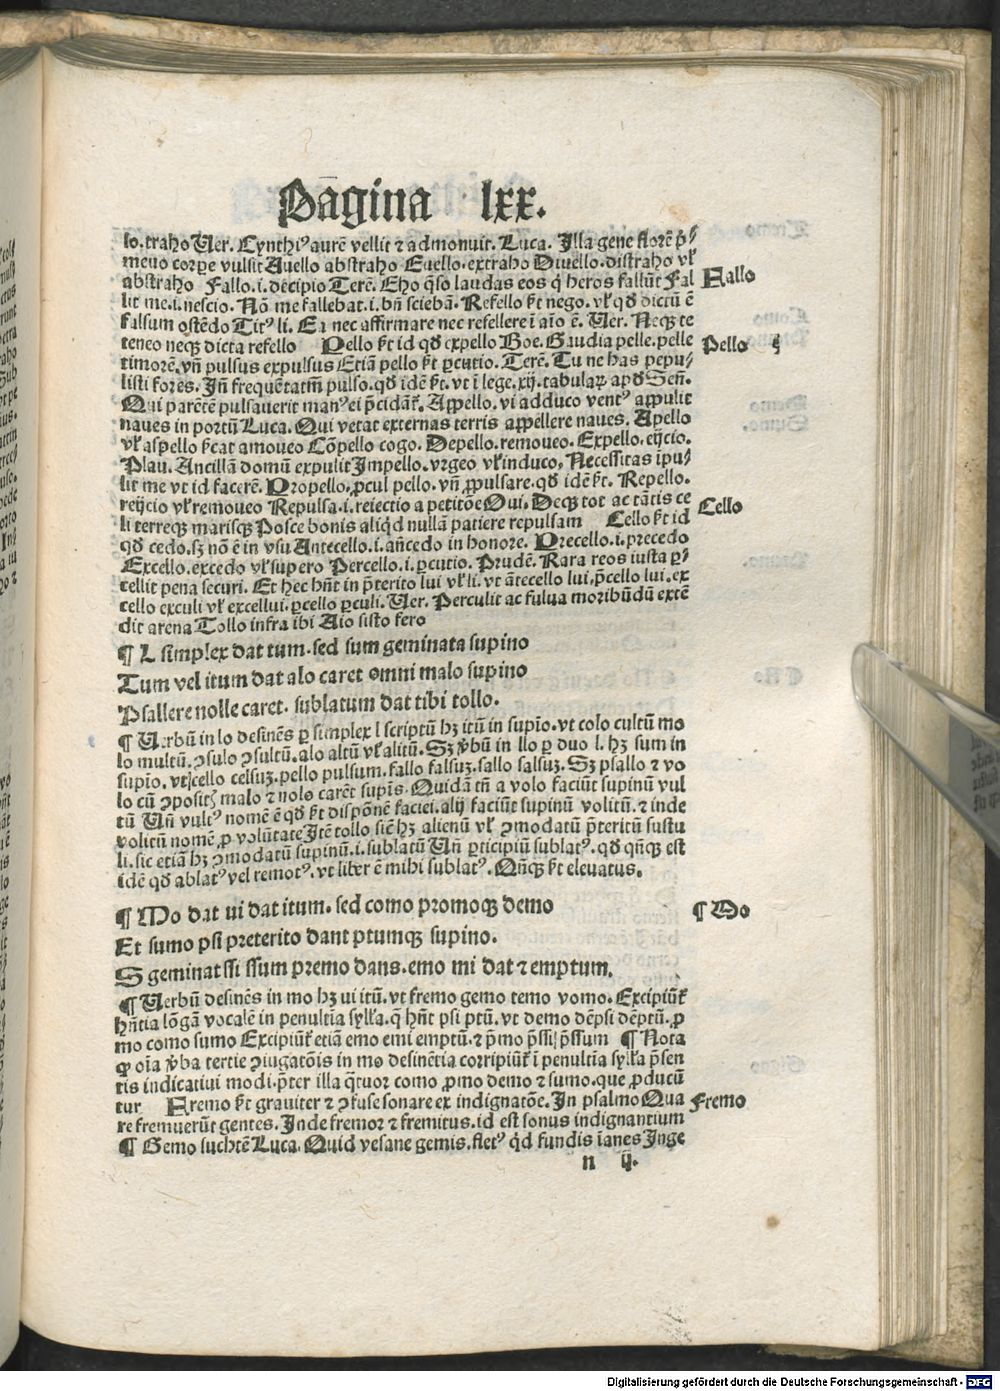 Pagina lxx.
lo. traho Uer. Cynthiꝰ aurē vellit ⁊ admonuit. Luca. Illa gene florē p̄ꝰ
meuo corꝑe vulsit Auello abstraho Euello. extraho Diuello. distraho vl̓
abstraho Fallo .i. decipio Terē. Eho q̄so laudas eos q̇ heros fallūt Fal
Fallo
lit me .i. nescio. Nō me fallebat .i. bn̄ sciebā. Refello ſt̓ nego. vl̓ qd̓ dictū ē
falsum ostēdo Titꝰ li. Ea nec affirmare nec refellere ī aīo ē. Uer. Neqꝫ te
teneo neqꝫ dicta refello Pello ſt̓ id qd̓ expello Boe. Gaudia pelle. pelle
Pello
timorē. vn̄ pulsus expulsus Etiā pello ſt̓ ꝑcutio. Terē. Tu ne has pepu⸗
listi fores. Jn̄ frequētatm̄ pulso. qd̓ idē ſt̓. vt ī lege .xij. tabulaꝝ apd̓ Sen̄.
Qui parētē pulsauerit manꝰ ei p̄cidāt̓. Appello. vi adduco ventꝰ appulit
naues in portū Luca. Qui vetat externas terris appellere naues. Apello
vl̓ aspello ſt̓cat amoueo Cōpello cogo. Depello. remoueo. Expello. eijcio.
Plau. Ancillā domū expulit Jmpello. vrgeo vl̓ induco. Necessitas īpu⸗
lit me vt id facerē. Propello. ꝓcul pello. vn̄ ꝓpulsare. qd̓ idē ſt̓. Repello.
reijcio vl̓ remoueo Repulsa .i. reiectio a petitōe Oui. Deqꝫ tot ac tātis ce
li terreqꝫ marisqꝫ Posce bonis aliqd̓ nullā patiere repulsam Cello ſt̓ id
Cello
qd̓ cedo. sꝫ nō ē in vsu Antecello .i. an̄cedo in honore. Precello .i. precedo
Excello. excedo vl̓ supero Percello .i. ꝑcutio. Prudē. Rara reos iusta ꝑ⸗
cellit pena securi. Et hec hn̄t in p̄terito lui vl̓ li. vt ātecello lui. p̄cello lui. ex
cello exculi vl̓ excellui. ꝑcello ꝑculi. Uer. Perculit ac fulua moribūdū extē
dit arena Tollo infra ibi Aio sisto fero
¶ L simplex dat tum. sed sum geminata supino
Tum vel itum dat alo caret omni malo supino
Psallere nolle caret. sublatum dat tibi tollo.
¶ Uerbū in lo desinēs ꝑ simplex l scriptū hꝫ itū in supīo. vt colo cultū mo
lo multū. ꝯsulo ꝯsultū. alo altū vl̓ alitū. Sꝫ v̓bū in llo ꝑ duo l. hꝫ sum in
supīo. vt cello celsuꝫ. pello pulsum. fallo falsuꝫ. sallo salsuꝫ. Sꝫ psallo ⁊ vo
lo cū ꝯpositꝭ malo ⁊ nolo carēt supīs. Quidā tn̄ a volo faciūt supinū vul
tū Un̄ vultꝰ nomē ē qd̓ ſt̓ dispōnē faciei. alij faciūt supinū volitū. ⁊ inde
volitū nomē. ꝓ volūtate Jtē tollo siē hꝫ alienū vl̓ ꝯmodatū p̄teritū sustu
li. sic etiā hꝫ ꝯmodatū supinū .i. sublatū Un̄ ꝑticipiū sublatꝰ. qd̓ qn̄qꝫ est
idē qd̓ ablatꝰ vel remotꝰ. vt liber ē mihi sublatꝰ. Qn̄qꝫ ſt̓ eleuatus.
¶ Mo dat ui dat itum. sed como promoqꝫ demo
¶ Mo
Et sumo psi preterito dant ptumqꝫ supino.
S geminat ssi ssum premo dans. emo mi dat ⁊ emptum.
¶ Uerbū desinēs in mo hꝫ ui itū. vt fremo gemo temo vomo. Excipiūt̓
hn̄tia lōgā vocalē in penultīa syll̓a. q̄ hn̄t psi ptū. vt demo dēpsi dēptū. ꝓ
mo como sumo Excipiūt̓ etiā emo emi emptū. ⁊ p̄mo p̄ssi p̄ssum ¶ Nota
ꝙ oīa v̓ba tertie ꝯiugatōis in mo desinētia corripiūt̓ ī penultīa syll̓a p̄sen
tis indicatiui modi. p̄ter illa q̄tuor como ꝓmo demo ⁊ sumo. que ꝓducū
tur Fremo ſt̓ grauiter ⁊ ꝯfuse sonare ex indignatōe. Jn psalmo Qua
Fremo
re fremuerūt gentes. Jnde fremor ⁊ fremitus. id est sonus indignantium
¶ Gemo suchtē Luca. Quid vesane gemis. fletꝰ qd̓ fundis īanes Jnge
n ij.
Digitalisierung gefördert durch die Deutsche Forschungsgemeinschaft - DFG